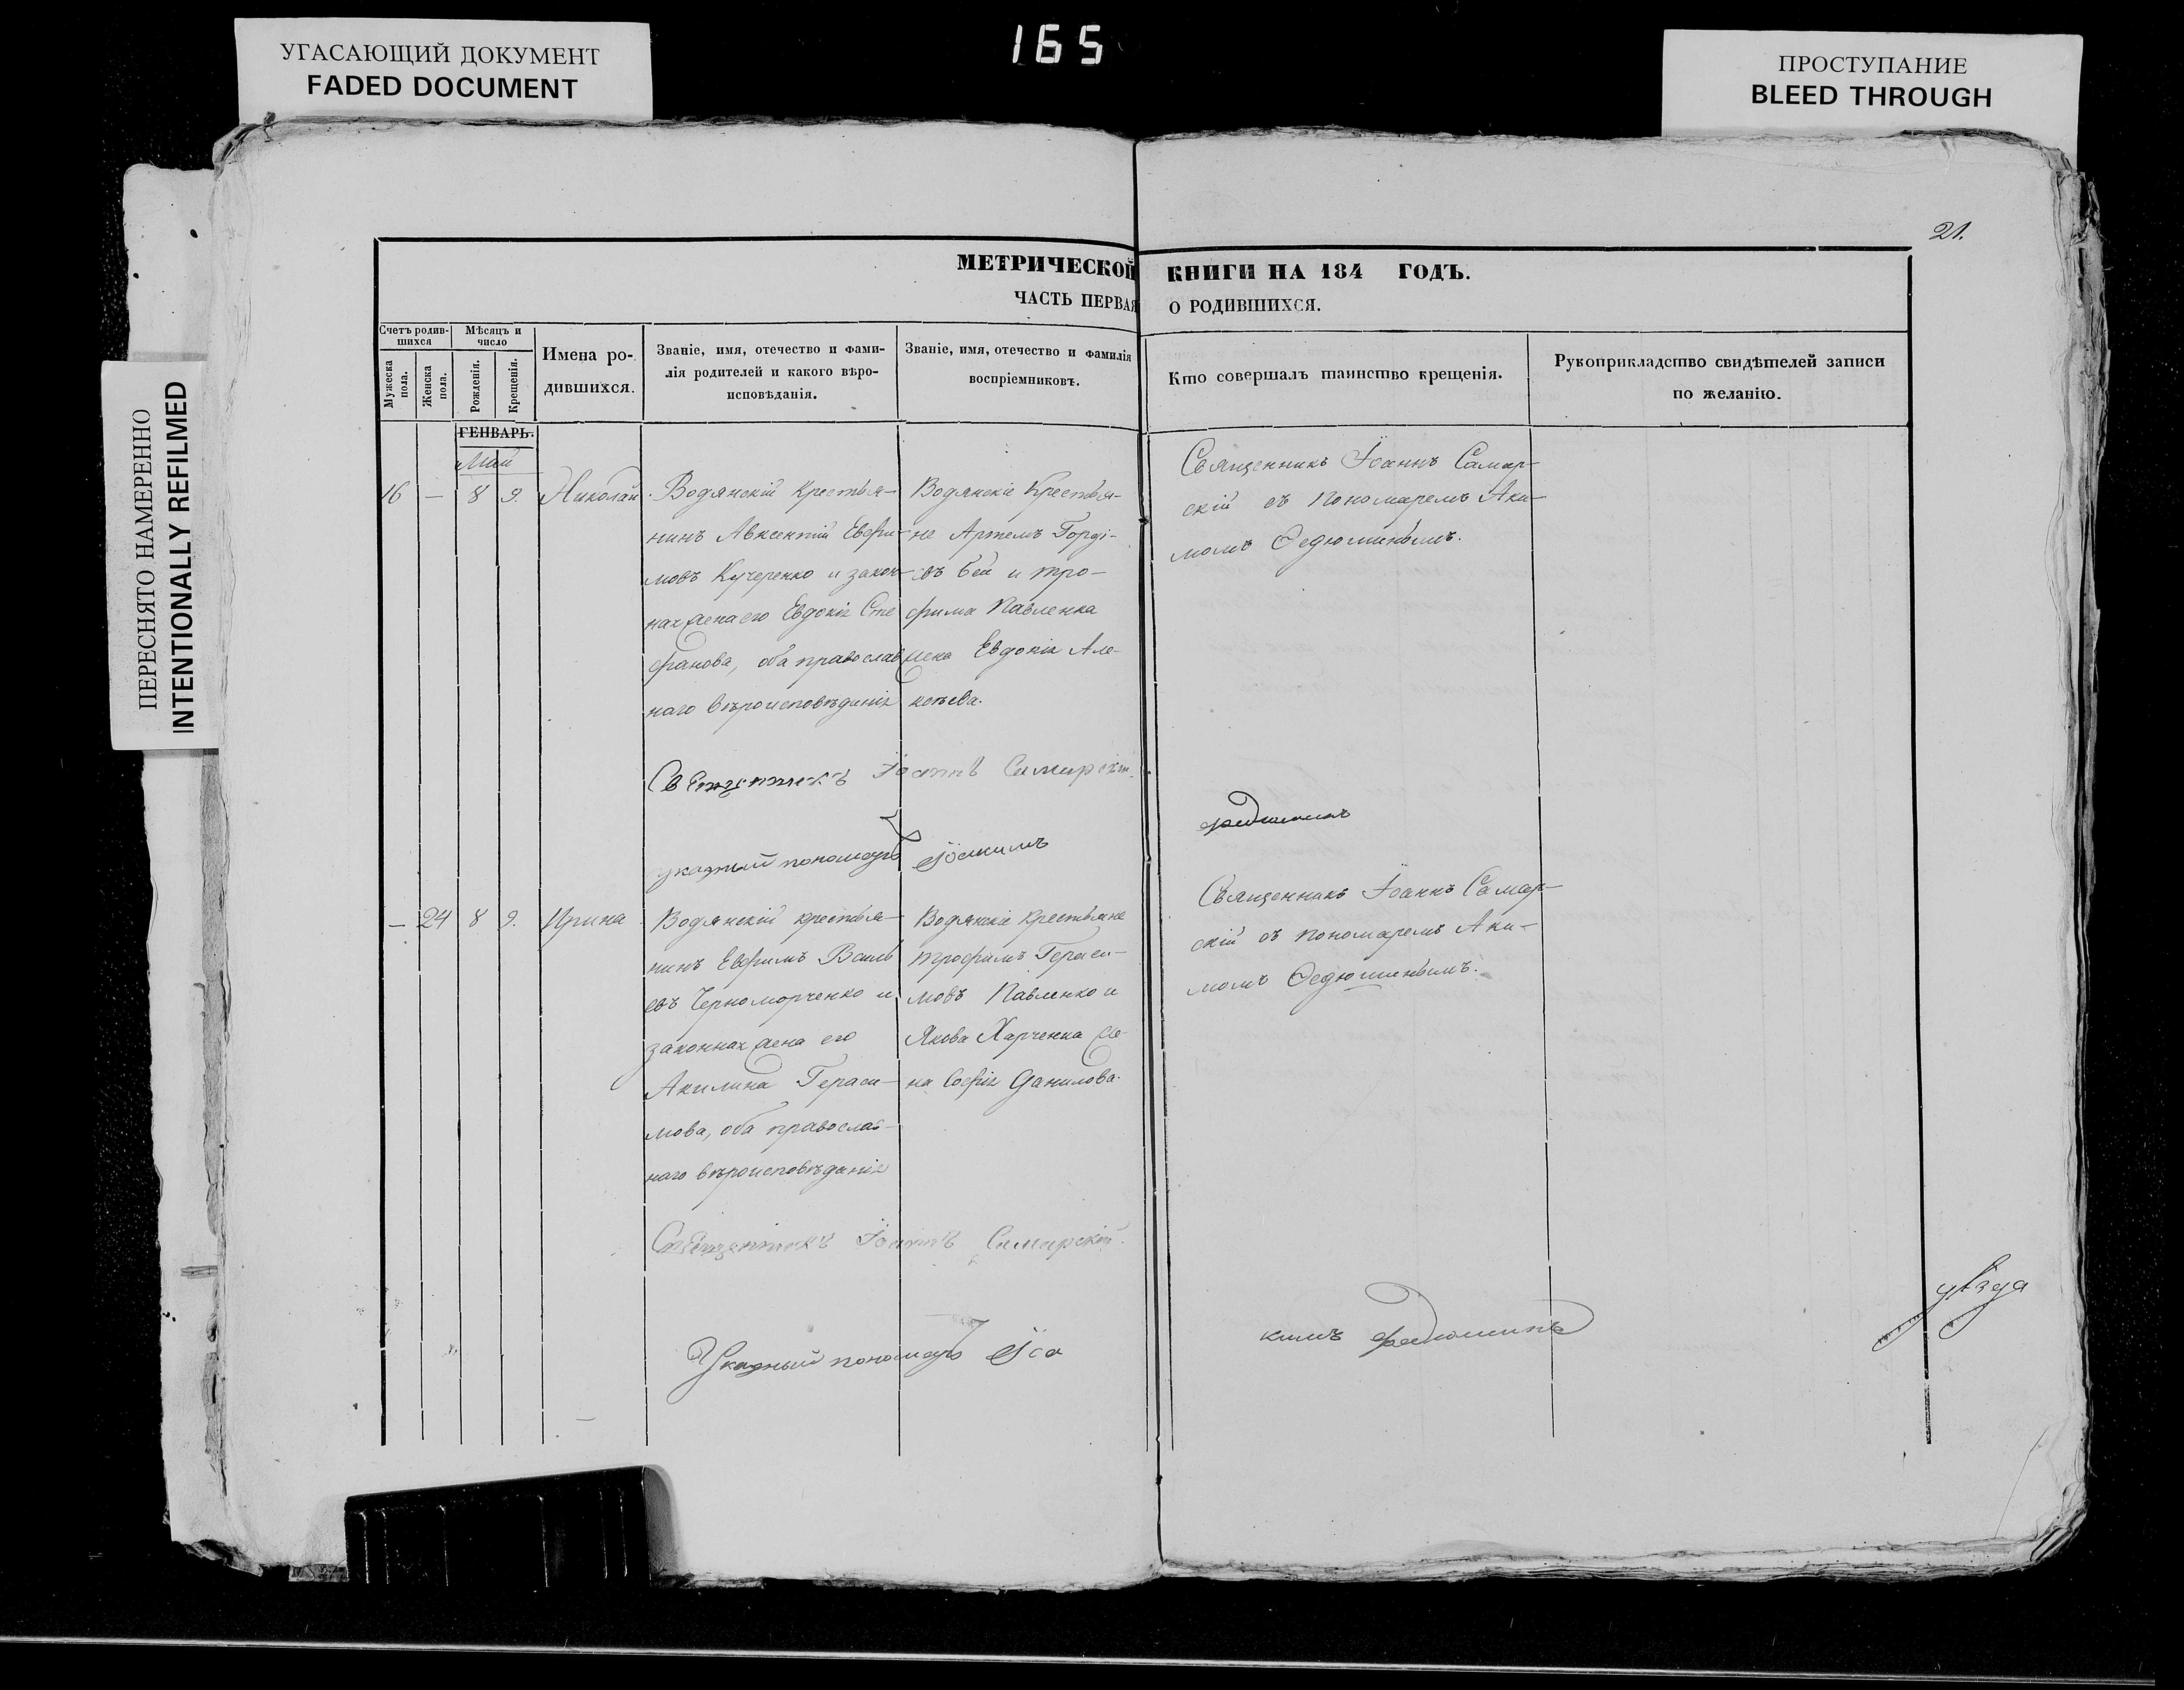 165
УГАСАЮЩИЙ ДОКУМЕНТ
FADED DOCUMENT
ПРОСТУПАНИЕ
BLEED THROUGH
ПЕРЕСНЯТО НАМЕРЕННО
INTENTIONALLY REFILMED
21.
МЕТРИЧЕСКОЙ КНИГИ НА 184 ГОДЪ.
ЧАСТЬ ПЕРВАЯ О РОДИВШИХСЯ.
Счетъ родив-
шихся
Мужеска пола.
Женска пола.
Мѣсяцъ и
число
Рожденія.
Крещенія.
Имена ро-
дившихся.
Званіе, имя, отечество и фами-
лія родителей и какого вѣро-
исповѣданія.
Званіе, имя, отечество и фамилія
воспріемниковъ.
Кто совершалъ таинство крещенія.
Рукоприкладство свидѣтелей записи
по желанію.
ГЕНВАРЬ.
Май
16 — 8 9. Николай
Водянскій крестья-
нинъ Авксентій Евфи-
мовъ Кучеренко и закон-
ная жена его Евдокія Сте
фанова, оба православ
наго вѣроисповѣданія
Водянскіе крестья-
не Артемъ Горді-
евъ Бей и Тро-
фима Павленка
жена Евдокія Але-
ксѣева.
Священникъ Іоаннъ Самар-
скій съ пономаремъ Аки-
момъ Ѳедюшинымъ.
Священникъ Іоаннъ Самарскій
указный пономарь Іоакимъ Федюшинъ
— 24 8 9. Ирина
Водянскій крестья-
нинъ Евфимъ Василь
евъ Черноморченко и
законная жена его
Акилина Гераси-
мова, оба православ-
наго вѣроисповѣданія
Водянскіе крестьяне
Трофимъ Гераси-
мовъ Павленко и
Якова Харченка же-
на Софія Данилова.
Священникъ Іоаннъ Самар-
скій съ пономаремъ Аки-
момъ Ѳедюшинымъ.
Священникъ Іоаннъ Самарскій.
Указный пономарь Іоа кимъ Федюшинъ
уѣзда